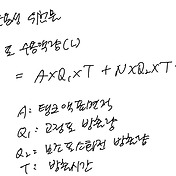 포 수용액량(L)
= A×Q₁×T + N×Q₂×T
A : 탱크액표면적
Q₁ : 고정포 방출량
Q₂ : 보조포소화전 방출량
T : 방출시간